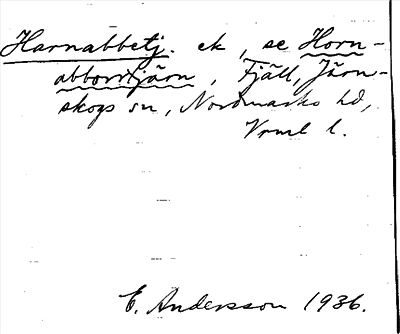 Harnabbetj. ek, se Horn-
abborrtjärn, Fjäll, Järn-
skogs sn, Nordmarks hd,
Vrml l.
E. Andersson 1936.